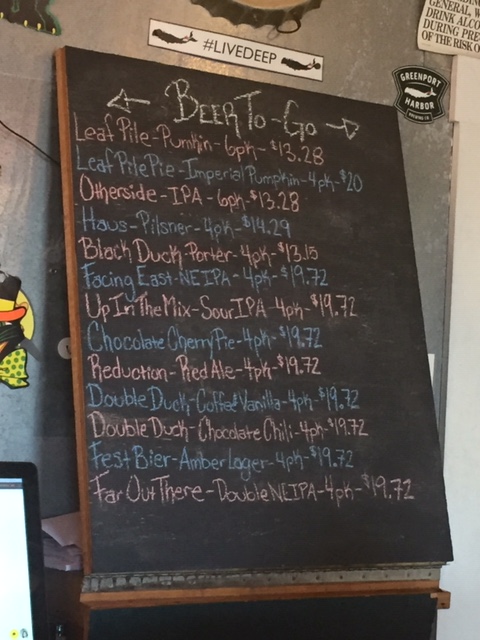 #LIVEDEEP
GENERAL, W
DRINK ALCO
DURING PRE
OF THE RISK O
GREENPORT
HARBOR
BREWING CO.
Beer To-Go
Leaf Pile-Pumkin-6pk-$13.28
Leaf Pile Pie-Imperial Pumpkin-4pk-$20
Otherside-IPA-6pk-$13.28
Haus-Pilsner-4pk-$14.29
Black Duck-Porter-4pk-$13.15
Facing East-NEIPA-4pk-$19.72
Up In The Mix-Sour IPA-4pk-$19.72
Chocolate Cherry Pie-4pk-$19.72
Reduction-Red Ale-4pk-$19.72
Double Duck-Coffee Vanilla-4pk-$19.72
Double Duck-Chocolate Chili-4pk-$19.72
Fest Bier-Amber Lager-4pk-$19.72
Far Out There-Double NEIPA-4pk-$19.72